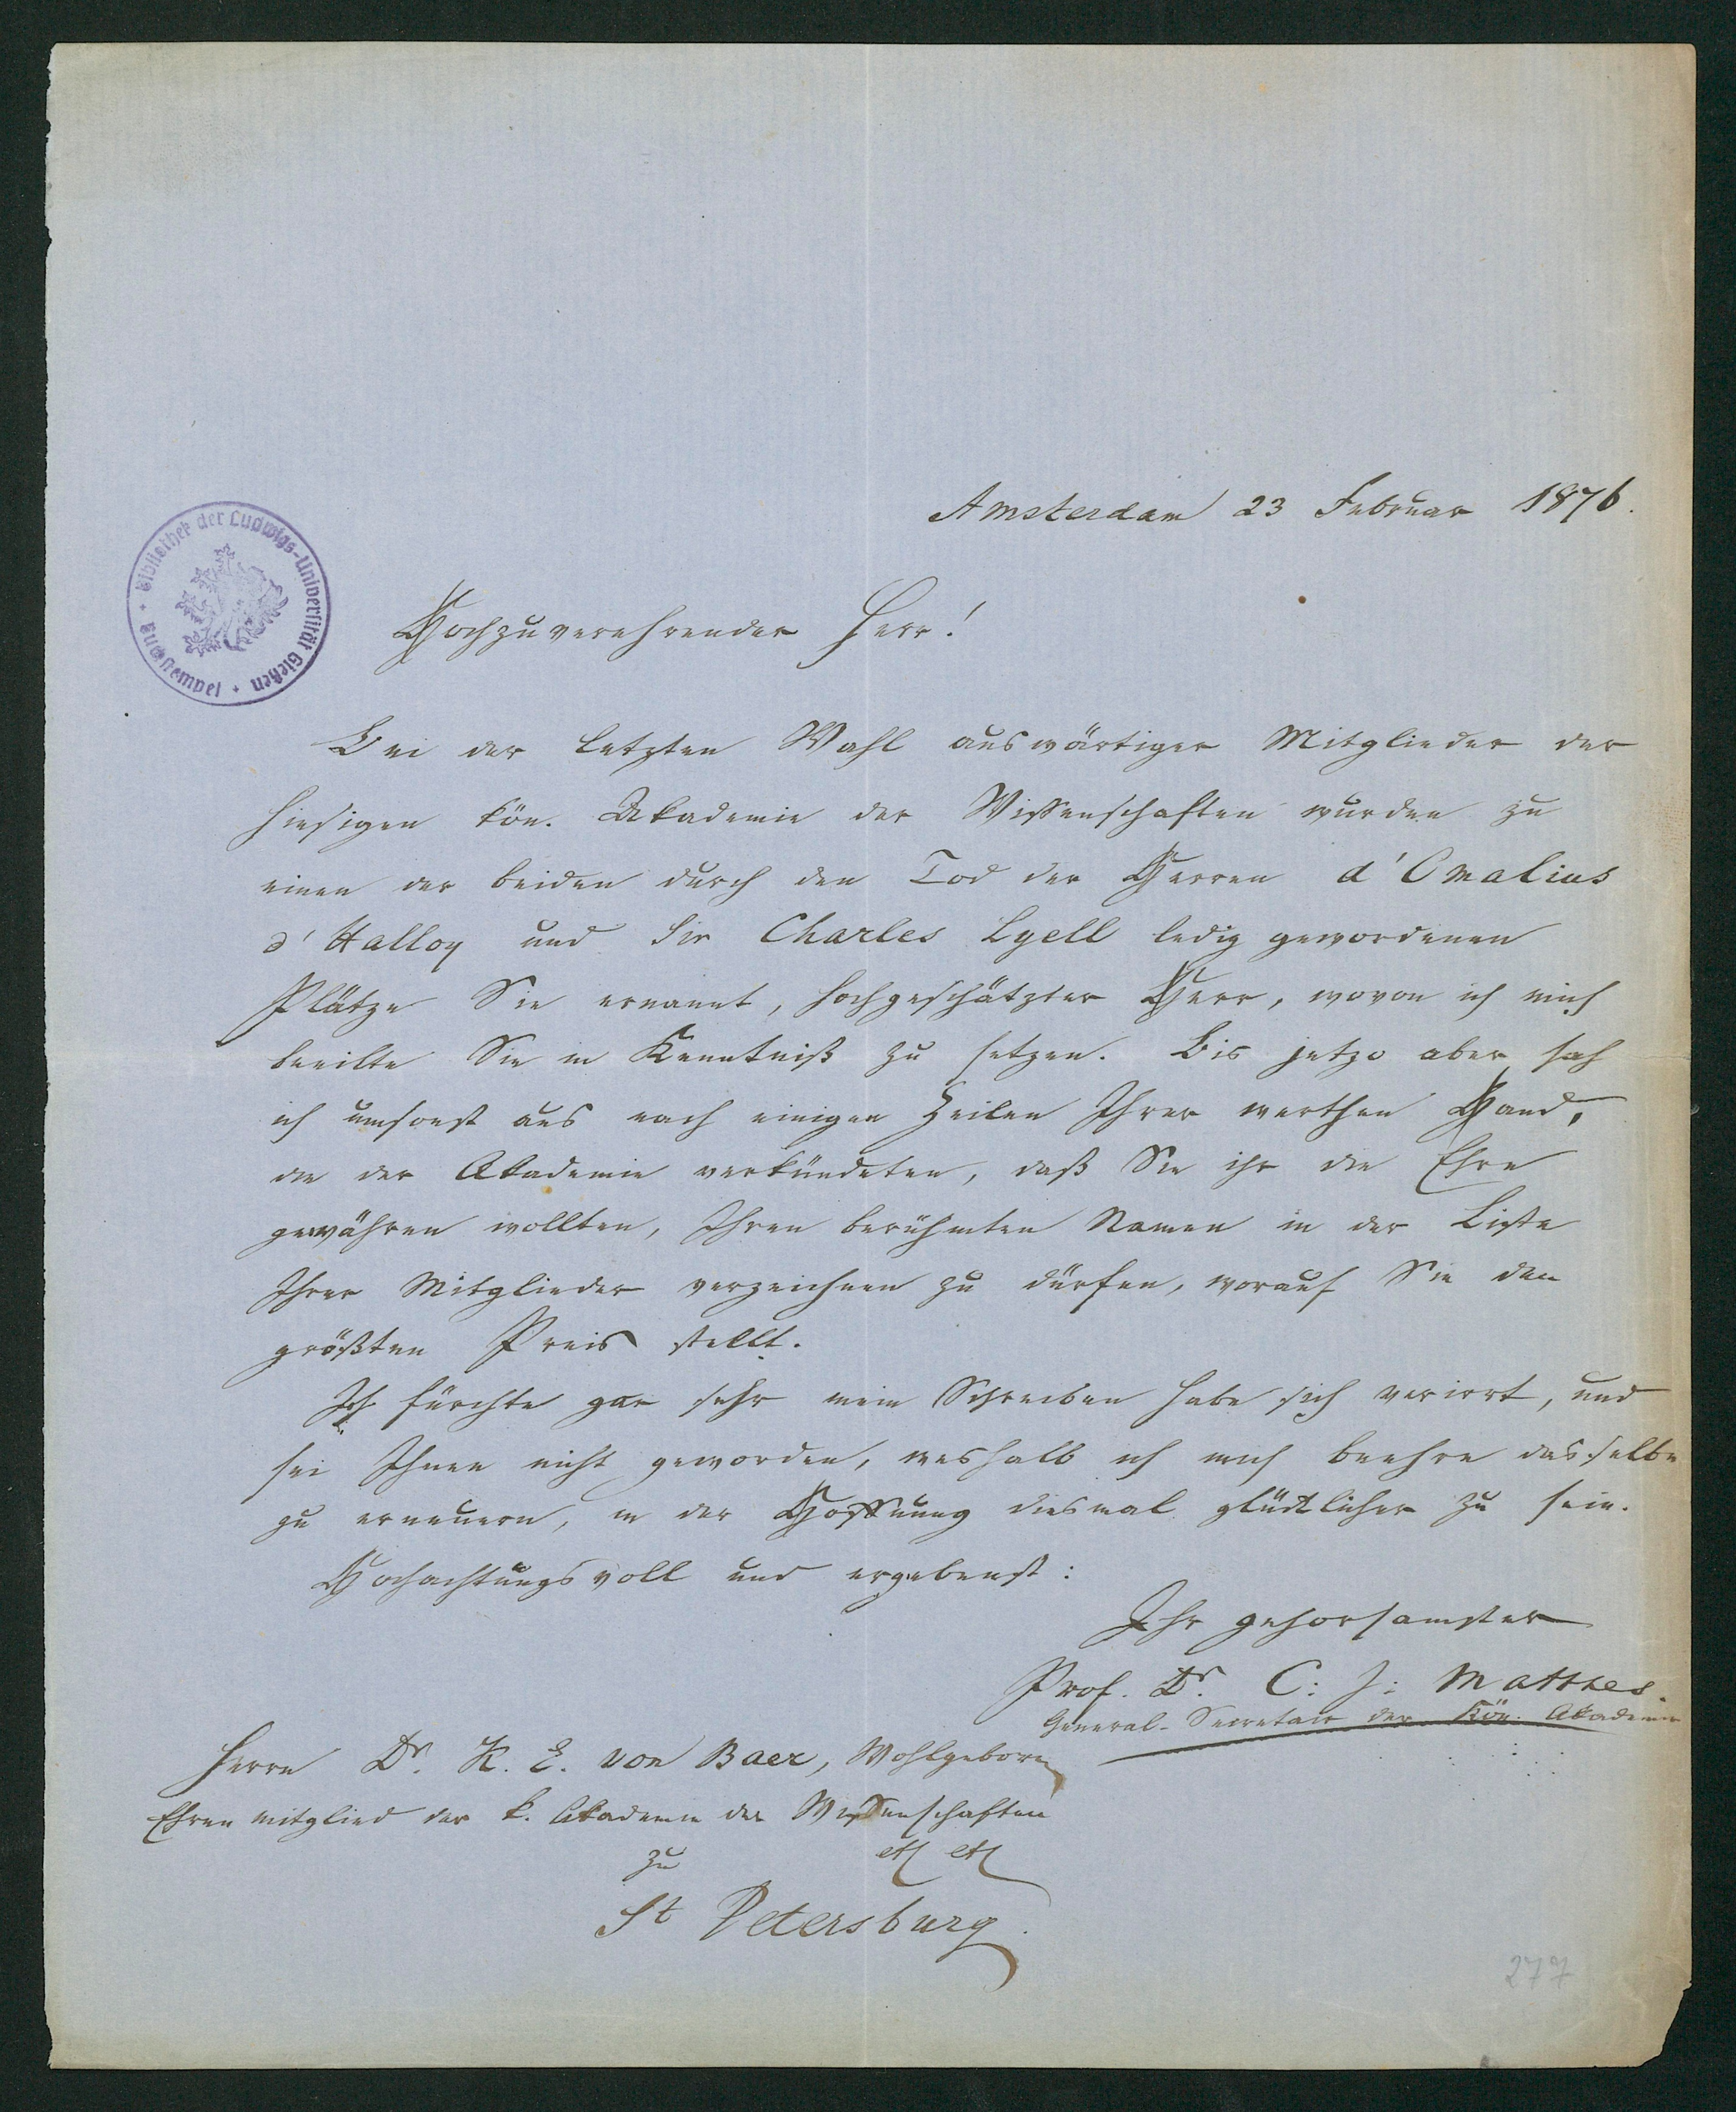 Amsterdam 23 Februar 1876.
Bibliothek der Ludwigs-Universität Gießen
Buchstempel
Hochzuverehrender Herr!
Bei der letzten Wahl auswärtiger Mitglieder der
hiesigen kön. Akademie der Wissenschaften wurden zu
einen der beiden durch den Tod der Herren d'Omalius
d'Halloy und Sir Charles Lyell ledig gewordenen
Plätze Sie ernannt, hochgeschätzter Herr, wovon ich mich
beeilte Sie in Kenntniß zu setzen. Bis jetzo aber sah
ich umsonst aus nach einigen Zeilen Ihrer werthen Hand,
die der Akademie verkündeten, daß Sie ihr die Ehre
gewähren wollten, Ihren berühmten Namen in der Liste
Ihrer Mitglieder verzeichnen zu dürfen, worauf Sie den
größten Preis stellt.
Ich fürchte gar sehr mein Schreiben habe sich verirrt, und
sei Ihnen nicht geworden, weshalb ich mich beehre dasselbe
zu erneuern, in der Hoffnung diesmal glücklicher zu sein.
Hochachtungsvoll und ergebenst:
Ihr gehorsamster
Prof. Dr. C: J: Matthes.
General-Secretair der Kön. Akademie
Herrn Dr. K. E. von Baer, Wohlgeboren
Ehrenmitglied der k. Akademie der Wissenschaften
zu etc etc
St Petersburg.
277